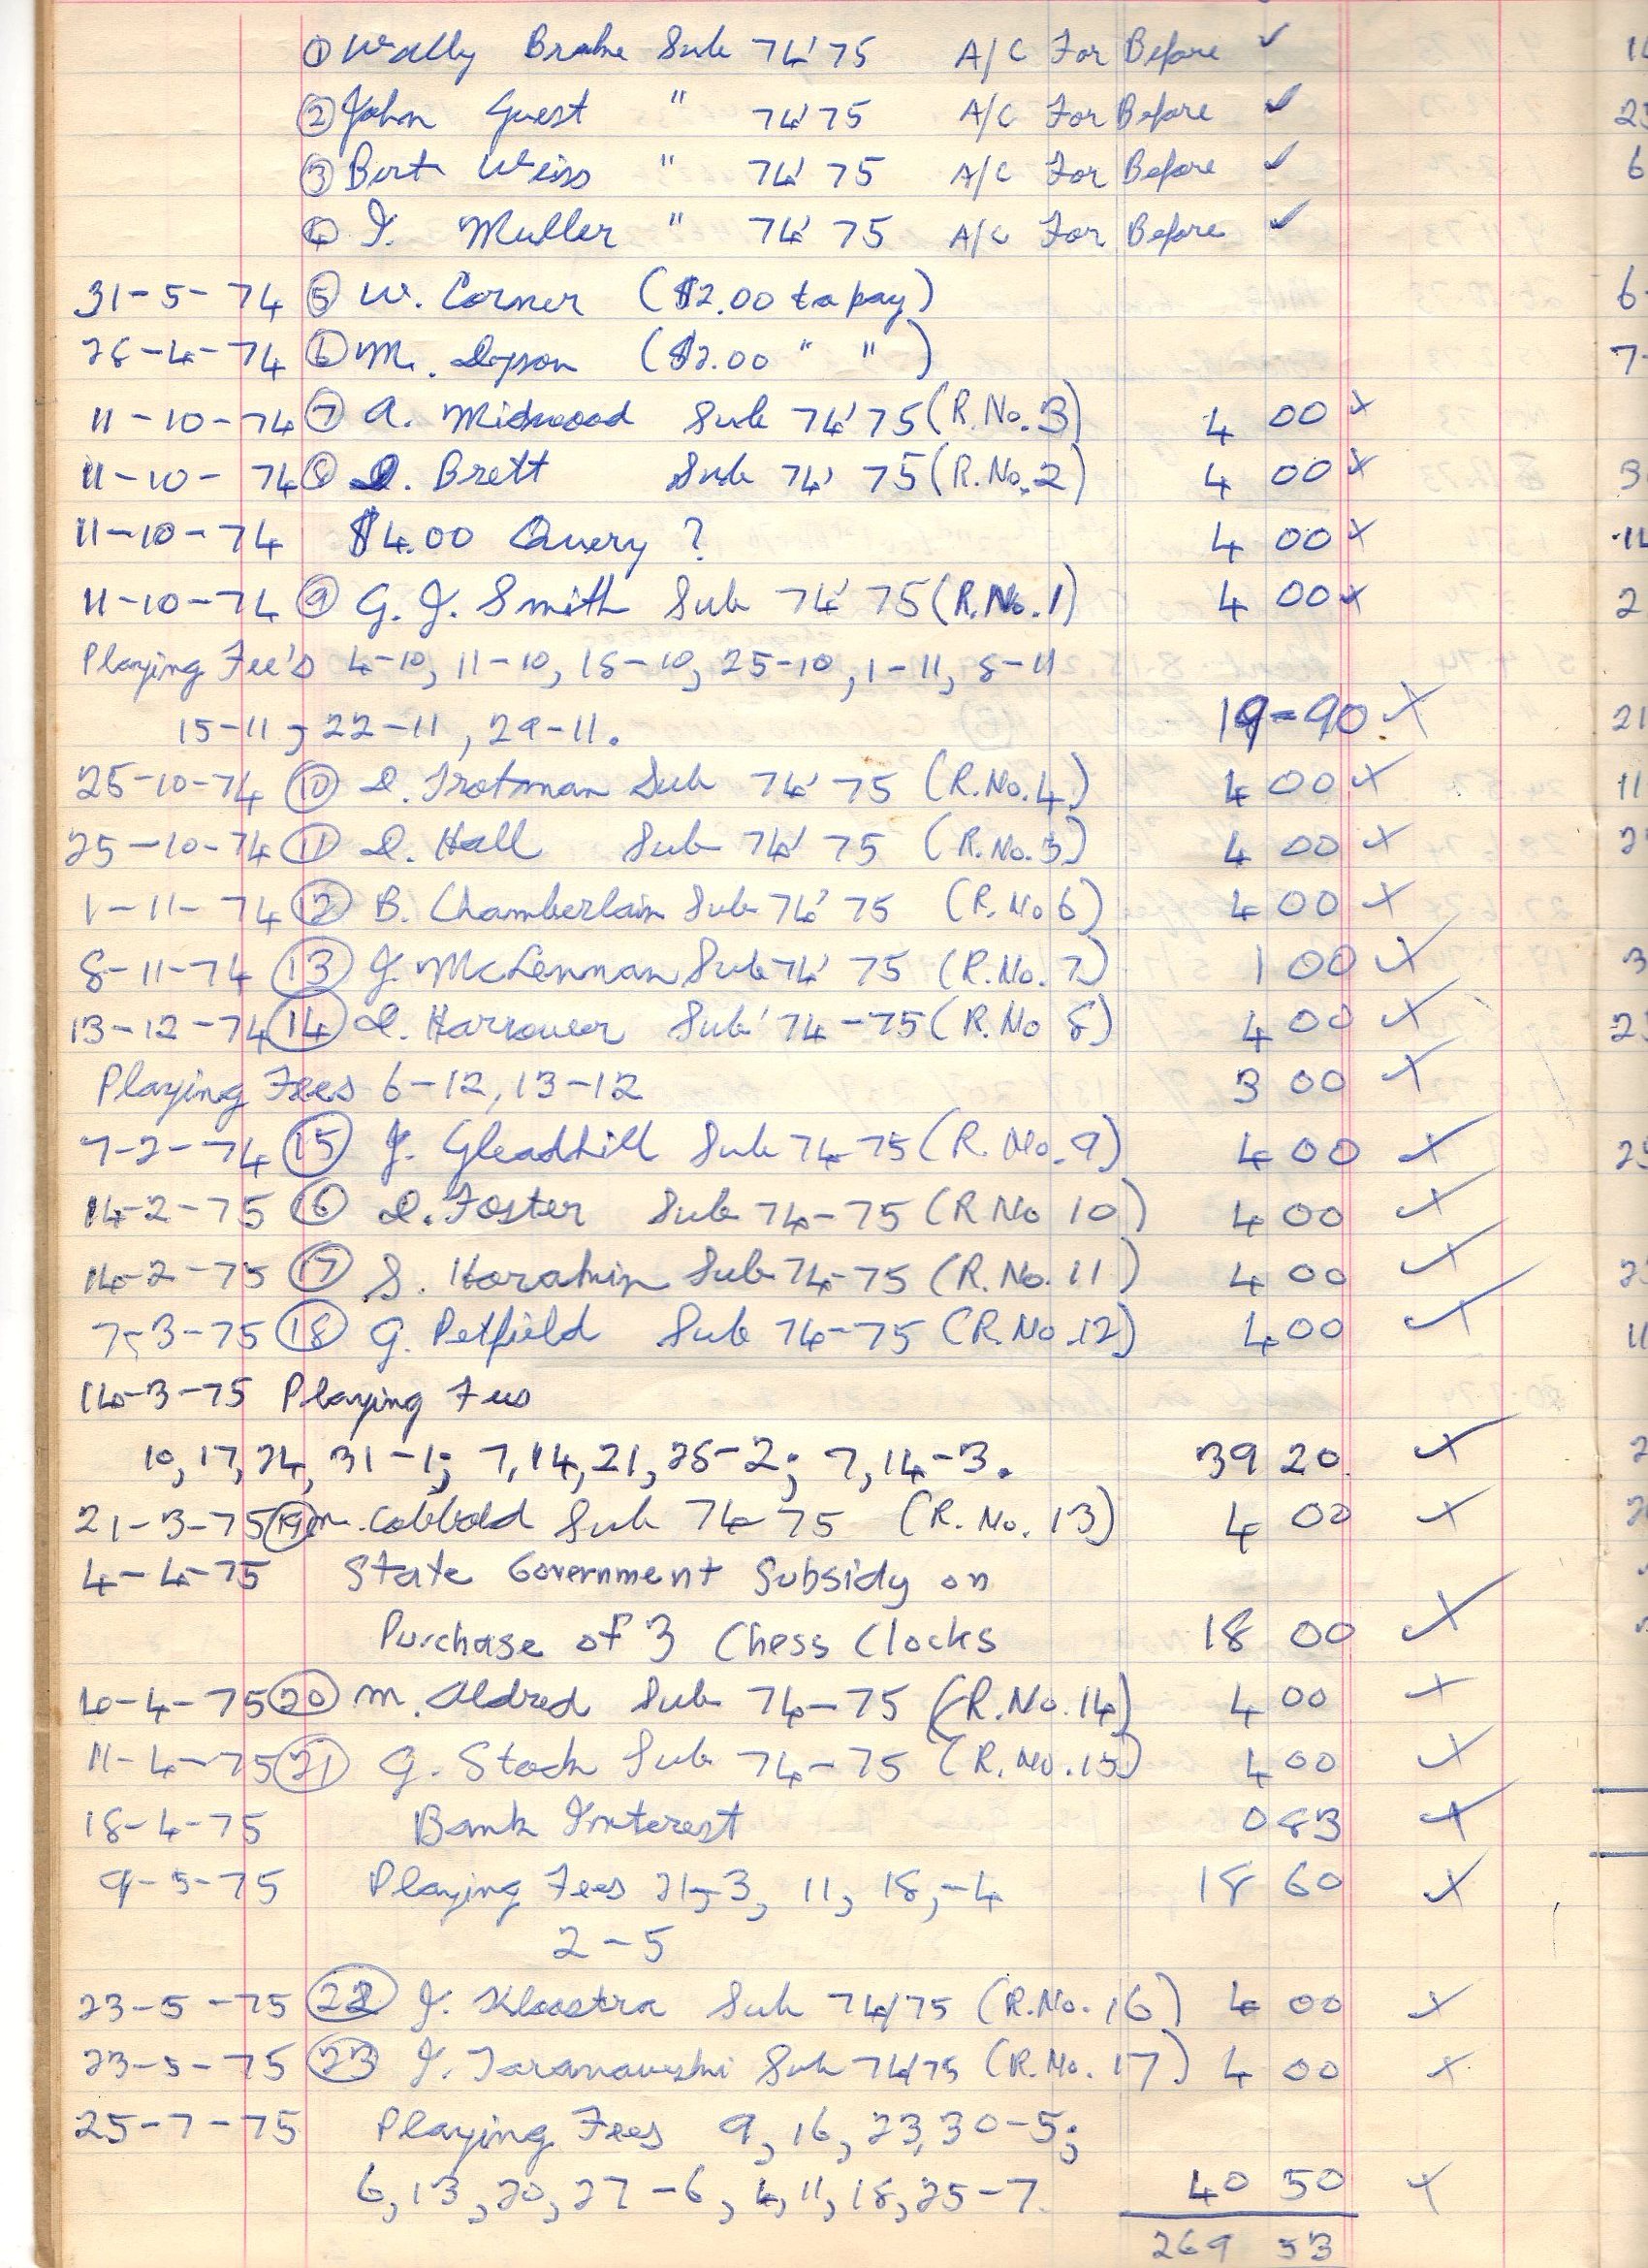 ① Wally Brahe Sub 74'75 A/C For Before ✓
② John Guest " 74'75 A/C For Before ✓
③ Bert Weiss " 74'75 A/C For Before ✓
④ J. Muller " 74'75 A/C For Before ✓
31-5-74 ⑤ W. Corner ($2.00 to pay)
28-4-74 ⑥ M. Dyson ($2.00 " ")
11-10-74 ⑦ A. Midwood Sub 74'75 (R.No.3) 4 00 x
11-10-74 ⑧ D. Brett Sub 74'75 (R.No.2) 4 00 x
11-10-74 $4.00 Query ? 4 00 x
11-10-74 ⑨ G. J. Smith Sub 74'75 (R.No.1) 4 00 x
Playing Fee's 4-10, 11-10, 18-10, 25-10, 1-11, 8-11
15-11, 22-11, 29-11. 19-90 x
25-10-74 ⑩ D. Trotman Sub 74'75 (R.No.4) 4 00 x
25-10-74 ⑪ D. Hall Sub 74'75 (R.No.3) 4 00 x
1-11-74 ⑫ B. Chamberlain Sub 74'75 (R.No 6) 4 00 x
8-11-74 ⑬ J. McLennan Sub 74'75 (R.No.7) 1 00 x
13-12-74 ⑭ D. Harrower Sub '74-75 (R.No 8) 4 00 x
Playing Fees 6-12, 13-12 3 00 x
7-2-74 ⑮ J. Gleadhill Sub 74-75 (R.No.9) 4 00 x
14-2-75 ⑯ D. Foster Sub 74-75 (R No 10) 4 00 x
14-2-75 ⑰ S. Sub 74-75 (R.No.11) 4 00 x
7-3-75 ⑱ G. Petfield Sub 74-75 (R.No.12) 4 00 x
14-3-75 Playing Fees
10, 17, 24, 31-1; 7, 14, 21, 28-2; 7, 14-3. 39 20 x
21-3-75 ⑲ M. Cobbold Sub 74-75 (R.No.13) 4 00 x
4-4-75 State Government Subsidy on
Purchase of 3 Chess Clocks 18 00 x
4-4-75 ⑳ M. Aldred Sub 74-75 (R.No.14) 4 00 x
11-4-75 ㉑ G. Stock Sub 74-75 (R.No.15) 4 00 x
18-4-75 Bank Interest 0 83 x
9-5-75 Playing Fees 21-3, 11, 18,-4 18 60 x
2-5
23-5-75 ㉒ J. Kloostra Sub 74/75 (R.No.16) 4 00 x
23-5-75 ㉓ J. Sub 74/75 (R.No.17) 4 00 x
25-7-75 Playing Fees 9, 16, 23, 30-5;
6, 13, 20, 27-6, 4, 11, 18, 25-7. 40 50 x
269 53